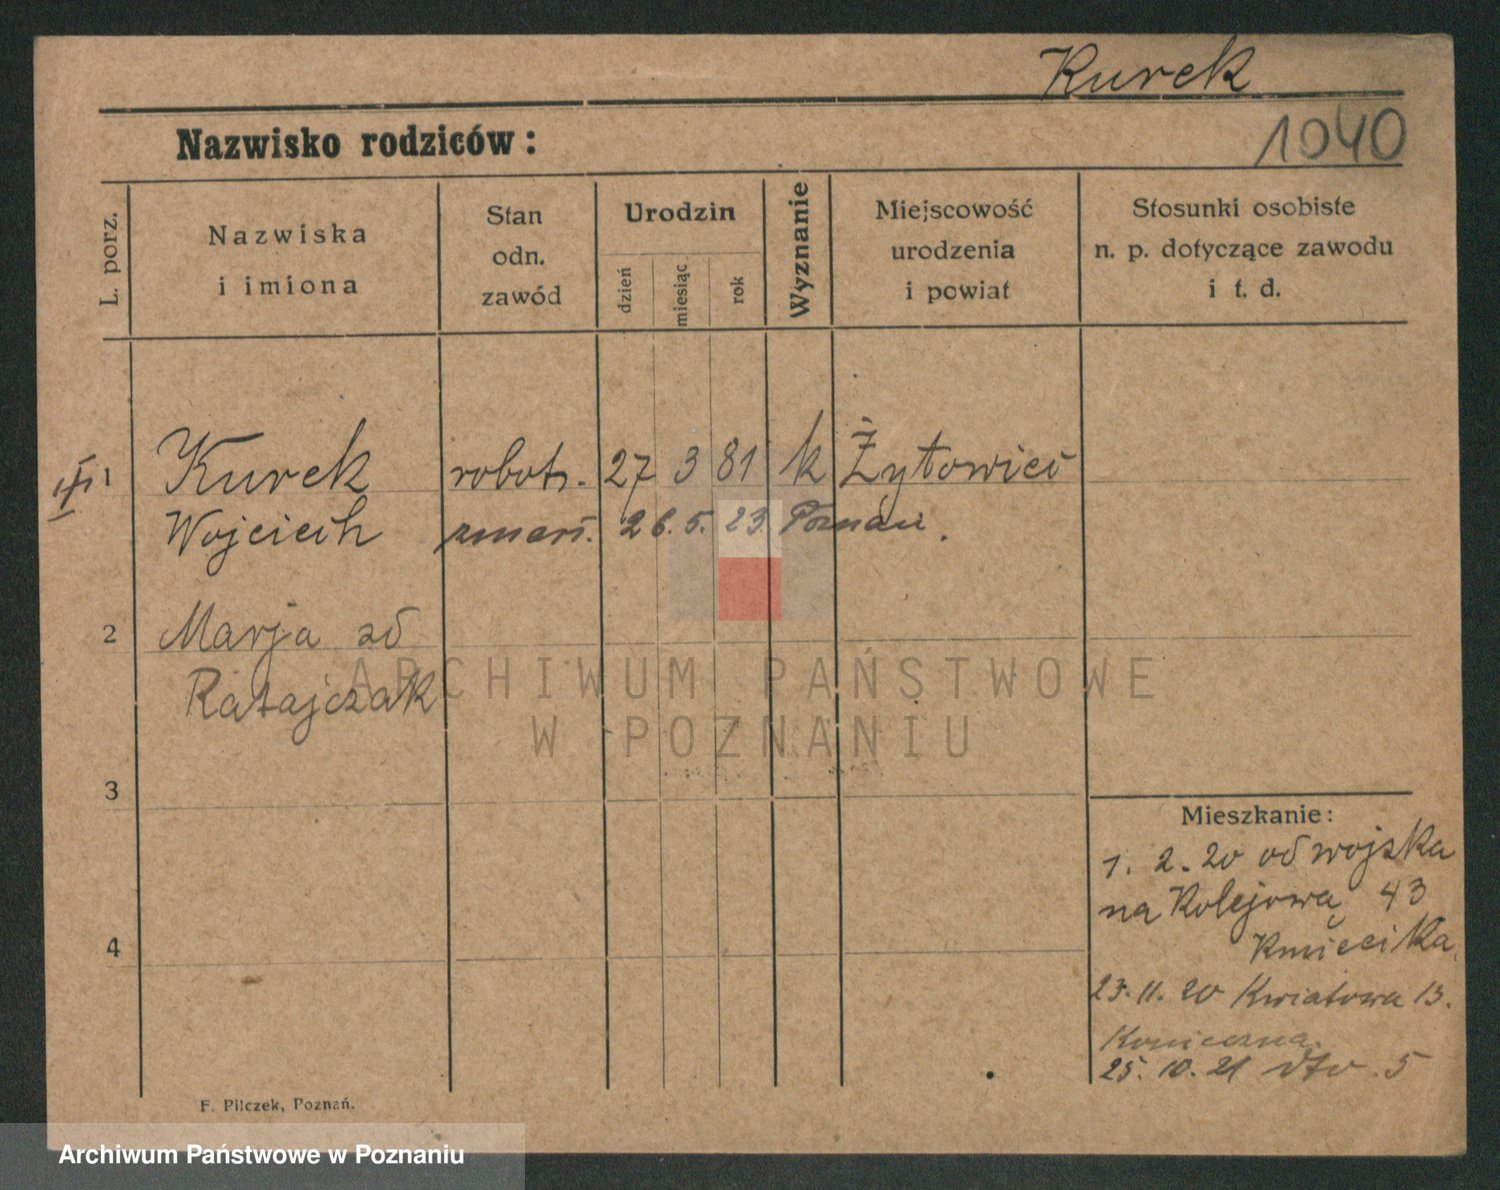 Kurek
1040
Nazwisko rodziców:
L. porz.
Nazwiska
i imiona
Stan
odn.
zawód
Urodzin
dzień
miesiąc
rok
Wyznanie
Miejscowość
urodzenia
i powiat
Stosunki osobiste
n. p. dotyczące zawodu
i t. d.
1 Kurek robotn. 27 3 81 k Żytowiec
Wojciech zmarł. 26. 5. 23. Poznań.
2 Marja zd
Ratajczak
ARCHIWUM PAŃSTWOWE
W POZNANIU
3
4
Mieszkanie:
1. 2. 20 od wojska
na Kolejową 43
Kmiecika.
23. 11. 20 Kwiatowa 13.
Konieczna.
25. 10. 21 dto. 5
F. Pilczek, Poznań.
Archiwum Państwowe w Poznaniu